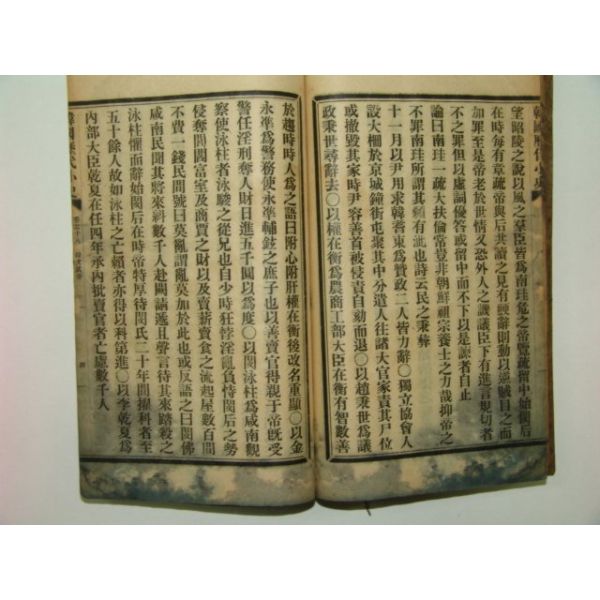 韓國歷代小史
望昭陵之說以風之羣臣皆爲南珪危之帝覽疏留中始閔后
在時每有章疏帝與后共讀之見有戇辭則動以逆賊目之而
加罪至是帝老於世情又恐外人之譏議臣下有進言規切者
不之罪但以虛詞優答或留中而不下以是諫者自止
論曰南珪一疏大扶倫常豈非朝鮮祖宗養士之力哉抑帝之
不罪南珪所謂其顙有泚也詩云民之秉彝
十一月以尹用求韓耆東爲贊政二人皆力辭〇獨立協會人
設大棚於京城鐘街屯聚其中分遣人往諸大官家責其尸位
或撤毀其家時尹容善首被侵責自劾而退〇以趙秉世爲議
政秉世尋辭去〇以權在衡爲農商工部大臣在衡有智數善
於趨時時人爲之語曰附心附肝權在衡後改名重顯〇以金
永準爲警務使永準輔鉉之庶子也以善賣官得親于帝旣受
警任淫刑奪人財日進五千圓以爲度〇以閔泳柱爲咸南觀
察使泳柱者泳駿之從兄也自少時狂悖淫亂負恃閔后之勢
侵奪閭閻富室及商賈之財以及賣薪賣食之流起屋數百間
不費一錢民間號曰莫亂謂亂莫加於此也或反語之曰閔佛
咸南民聞其將來將數千人赴闕請遞且聲言待其來踏殺之
泳柱懼而辭始閔后在時帝特厚待閔氏二十年間擢科者至
五十餘人故如泳柱之亡賴者亦得以科第進〇以李乾夏爲
內部大臣乾夏在任四年承內批賣官者亡慮數千人
韓國歷代小史